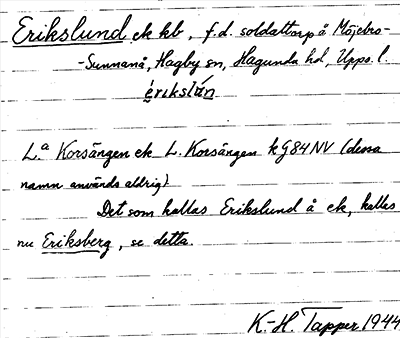 Erikslund ek kb, f.d. soldattorp å Möjebro-
-Sunnanå, Hagby sn, Hagunda hd, Upps. l.
érikslùn
L:a Korsängen ek L. Korsängen k G84NV (dessa
namn används aldrig)
Det som kallas Erikslund å ek, kallas
nu Eriksberg, se detta.
K.-H. Tapper 1944